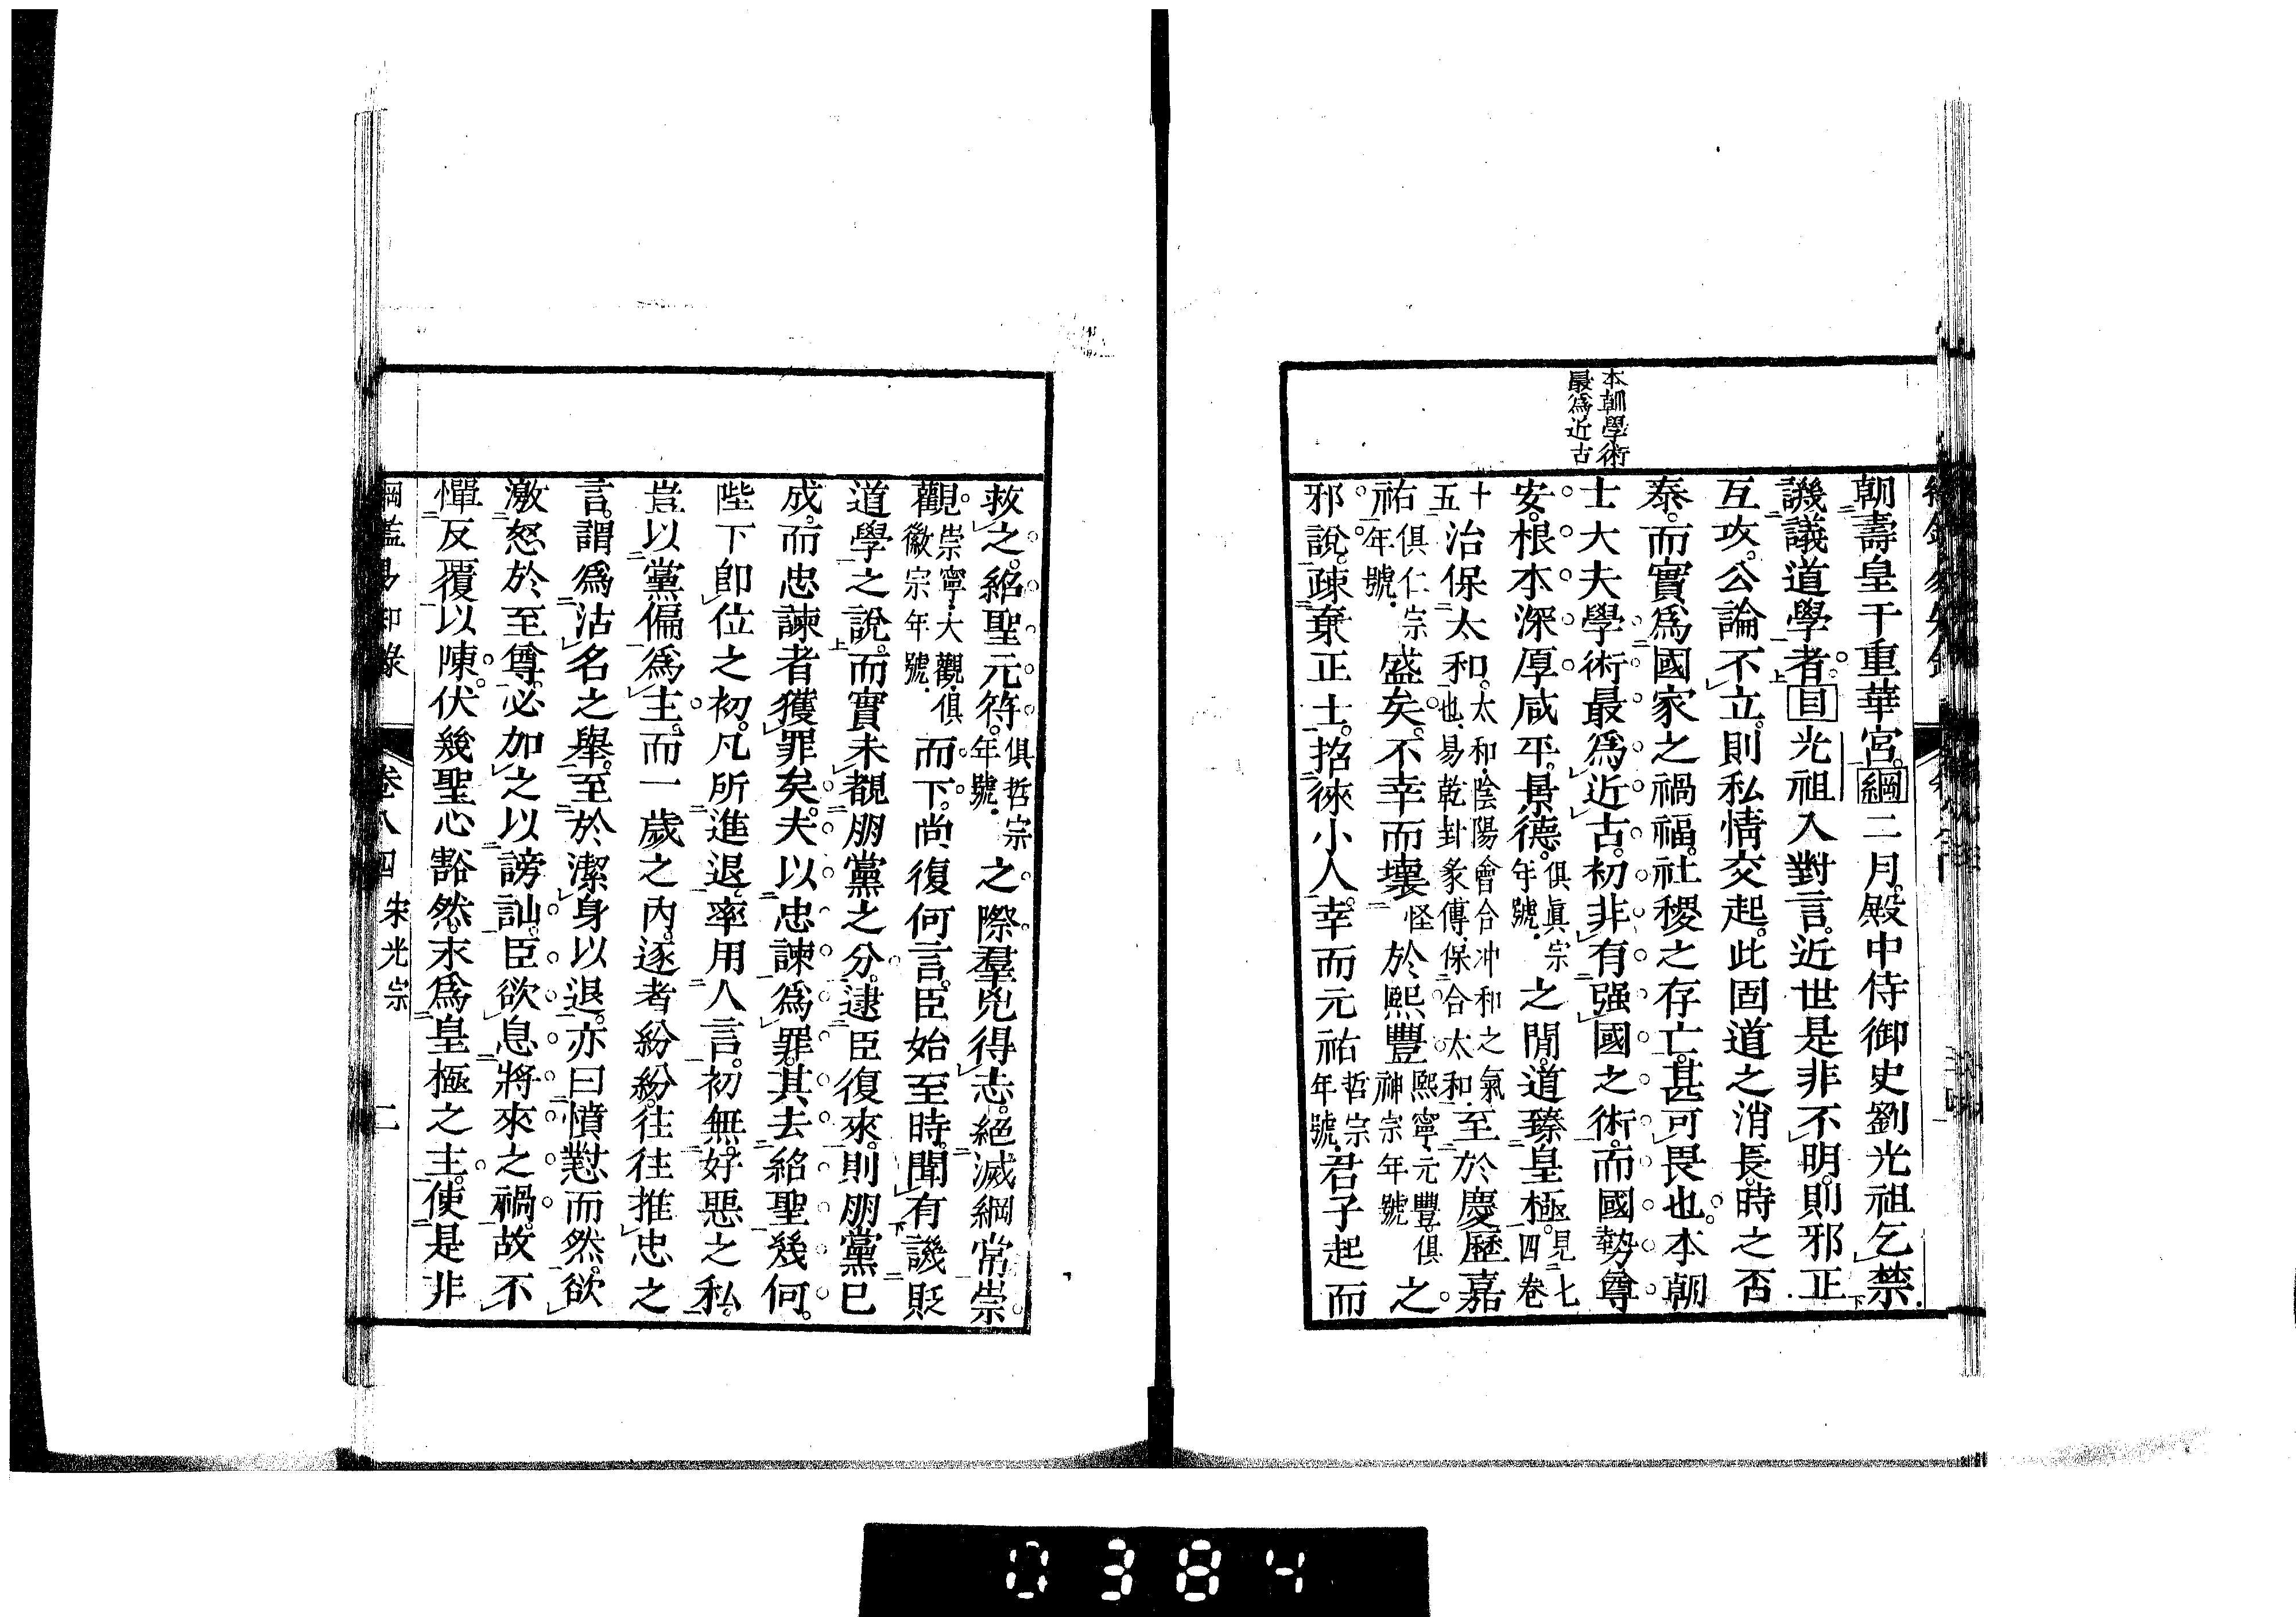 本朝學術
最爲近古
朝壽皇于重華宮。綱二月。殿中侍御史劉光祖乞禁
譏議道學者。目光祖入對言。近世是非不明。則邪正
互攻。公論不立。則私情交起。此固道之消長。時之否
泰。而實爲國家之禍福。社稷之存亡。甚可畏也。本朝
士大夫學術最爲近古。初非有强國之術。而國勢尊
安。根本深厚。咸平。景德。俱眞宗年號。之閒。道臻皇極。見七四卷
十五治保太和。太和。陰陽會合冲和之氣也。易乾卦彖傳。保合太和。至於慶歷嘉
祐俱仁宗年號。盛矣。不幸而壞怪於熙豐熙寧。元豐。俱神宗年號之
邪說。疎棄正士。招徠小人。幸而元祐哲宗年號。君子起而
救之。紹聖元符。俱哲宗年號。之際。羣兇得志。絕滅綱常。崇
觀。崇寧。大觀。俱徽宗年號。而下。尚復何言。臣始至時。聞有譏貶
道學之說。而實未覩朋黨之分。逮臣復來。則朋黨已
成。而忠諫者獲罪矣。夫以忠諫爲罪。其去紹聖幾何。
陛下卽位之初。凡所進退。率用人言。初無好惡之私。
豈以黨偏爲主。而一歲之內。逐者紛紛。往往推忠之
言。謂爲沽名之舉。至於潔身以退。亦曰憤懟而然。欲
激怒於至尊。必加之以謗訕。臣欲息將來之禍。故不
憚反覆以陳。伏幾聖心豁然。永爲皇極之主。使是非
綱鑑易知錄 卷八四 宋光宗 二
0384